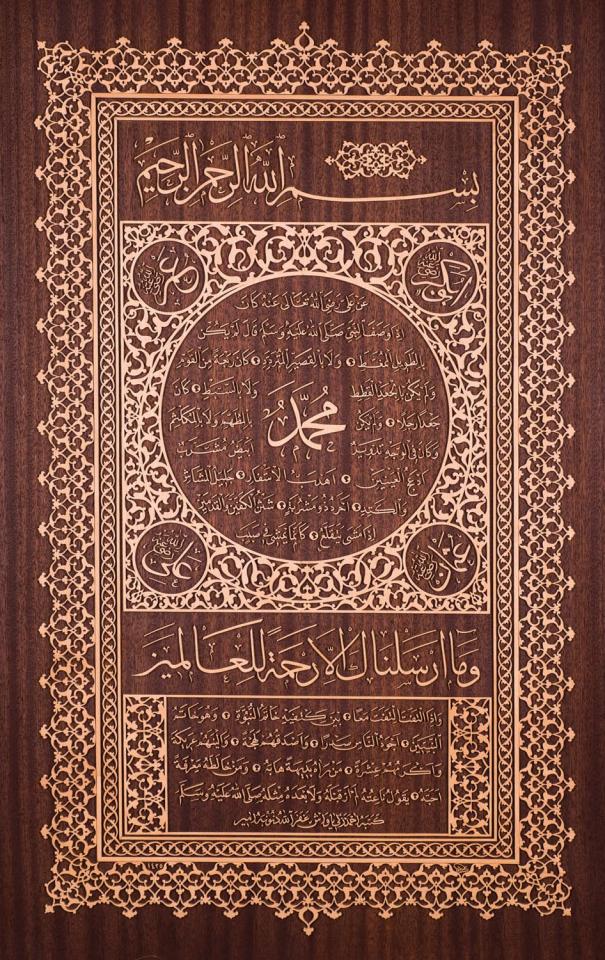 بسم الله الرحمن الرحيم
ابوبكر رضي الله عنه
عمر رضي الله عنه
عن علي رضي الله تعالى عنه كان
اذا وصف النبي صلى الله عليه وسلم قال لم يكن
بالطويل الممغط ولا بالقصير المتردد وكان ربعة من القوم
ولم يكن بالجعد القطط ولا بالسبط كان
جعدا رجلا ولم يكن بالمطهم ولا بالمكلثم
محمد
وكان في الوجه تدوير ابيض مشرب
ادعج العينين اهدب الاشفار جليل المشاش
والكتد اجرد ذو مسربة شثن الكفين والقدمين
اذا مشى يتقلع كانما يمشي في صبب
عثمان رضي الله عنه
علي رضي الله عنه
وما ارسلناك الا رحمة للعالمين
واذا التفت التفت معا بين كتفيه خاتم النبوة وهو خاتم
النبيين اجود الناس صدرا واصدقهم لهجة والينهم عريكة
واكرمهم عشرة من راه بديهة هابه ومن خالطه معرفة
احبه يقول ناعته لم ار قبله ولا بعده مثله صلى الله عليه وسلم
كتبه غفر الله ذنوبه
١٤٢٥